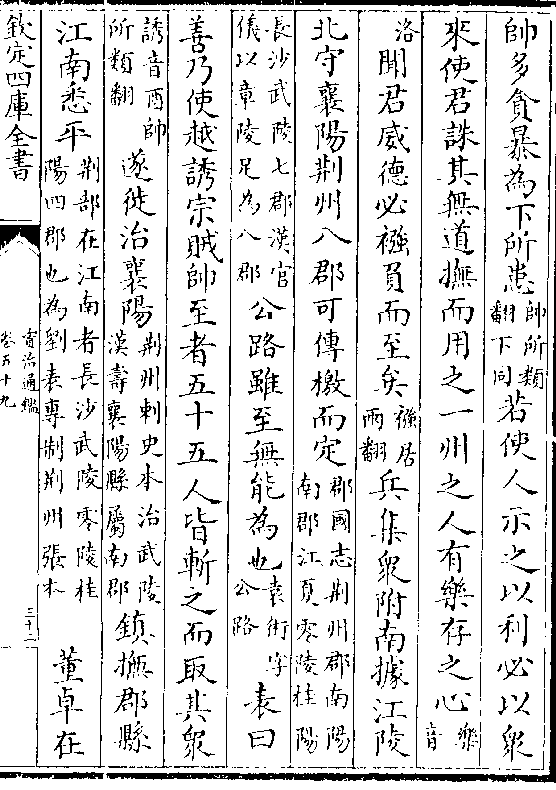 帥多貪暴為下所患帥所類翻下同若使人示之以利必以衆
來使君誅其無道撫而用之一州之人有樂存之心樂音
洛聞君威德必襁負而至矣襁居兩翻兵集衆附南據江陵
北守襄陽荆州八郡可傳檄而定郡國志荆州郡南陽南郡江夏零陵桂陽
長沙武陵七郡漢官儀以章陵足為八郡公路雖至無能為也袁術字公路表曰
善乃使越誘宗賊帥至者五十五人皆斬之而取其衆
誘音酉帥所類翻遂徙治襄陽荆州刺史本治武陵漢壽襄陽縣屬南郡鎮撫郡縣
江南悉平荆部在江南者長沙武陵零陵桂陽四郡也為劉表專制荆州張本董卓在
欽定四庫全書
資治通鑑
卷五十九
三十二